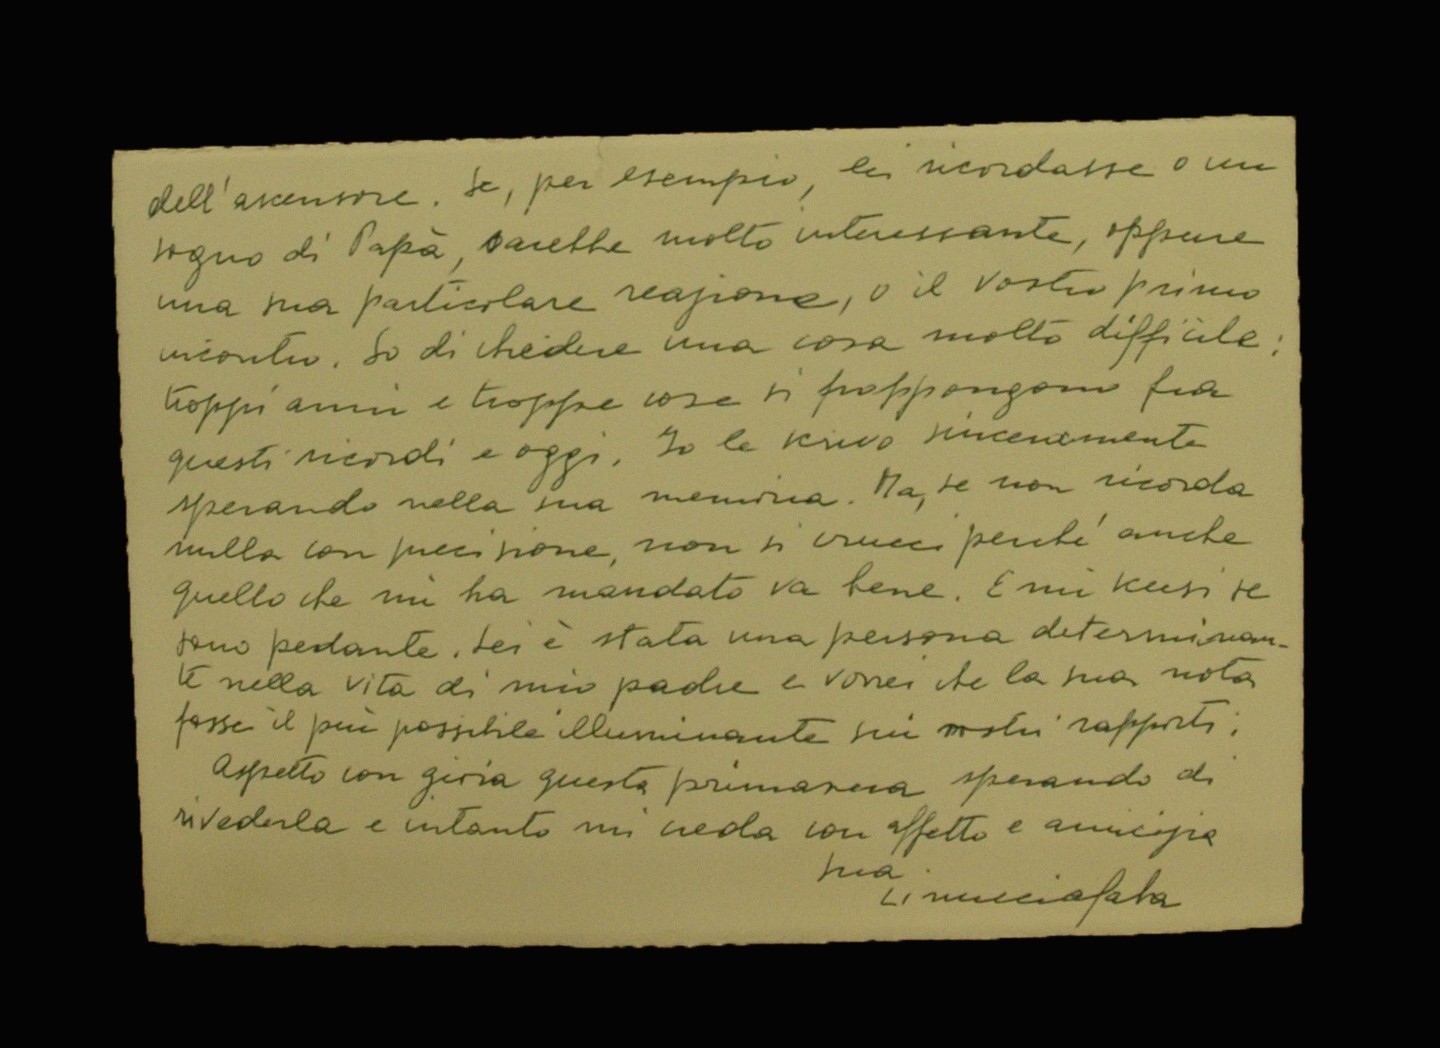 dell'ascensore. Se, per esempio, lei ricordasse o un
sogno di Papà, sarebbe molto interessante, oppure
una sua particolare reazione, o il vostro primo
incontro. So di chiedere una cosa molto difficile:
troppi anni e troppe cose si frappongono fra
questi ricordi e oggi. Io le scrivo sinceramente
sperando nella sua memoria. Ma, se non ricorda
nulla con precisione, non si crucci perché anche
quello che mi ha mandato va bene. E mi scusi se
sono pedante. Lei è stata una persona determinan-
te nella vita di mio padre e vorrei che la sua nota
fosse il più possibile illuminante sui vostri rapporti.
Aspetto con gioia questa primavera sperando di
rivederla e intanto mi creda con affetto e amicizia
sua
Linuccia Saba